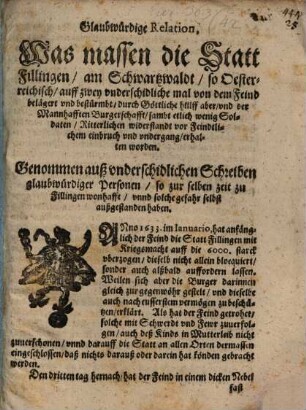 Glaubwürdige Relation,
Was massen die Statt
Fillingen / am Schwartzwaldt / so Oester-
reichisch / auff zwey vnderschidliche mal von dem Feind
belägert vnd bestürmbt / durch Göttliche hülff aber / vnd der
Mannhafften Burgerschafft / sambt etlich wenig Sol-
daten / Ritterlichen widerstandt vor Feindtli-
chem einbruch vnd vndergang / erhal-
ten worden.
Genommen auß vnderschidlichen Schreiben
glaubwürdiger Personen / so zur selben zeit zu
Fillingen wonhafft / vnnd solche gefahr selbst
außgestanden haben.
ANno 1633. im Ianuario, hat anfäng-
lich der Feind die Statt Fillingen mit
Kriegsmacht auff die 6000. starck
vberzogen / dieselb nicht allein blocquiert /
sonder auch alßbald auffordern lassen.
Weilen sich aber die Burger darinnen
gleich zur gegenwöhr gestelt / vnd dieselbe
auch nach eusserstem vermögen zu beschü-
tzen / erklärt. Als hat der Feind getrohet /
solche mit Schwerdt vnd Fewr zuuerfol-
gen / auch deß Kinds in Mutterleib nicht
zuuerschonen / vnnd darauff die Statt an allen Orten dermassen
eingeschlossen / daß nichts darauß oder darein hat können gebracht
werden.
Den dritten tag hernach / hat der Feind in einem dicken Nebel
fast